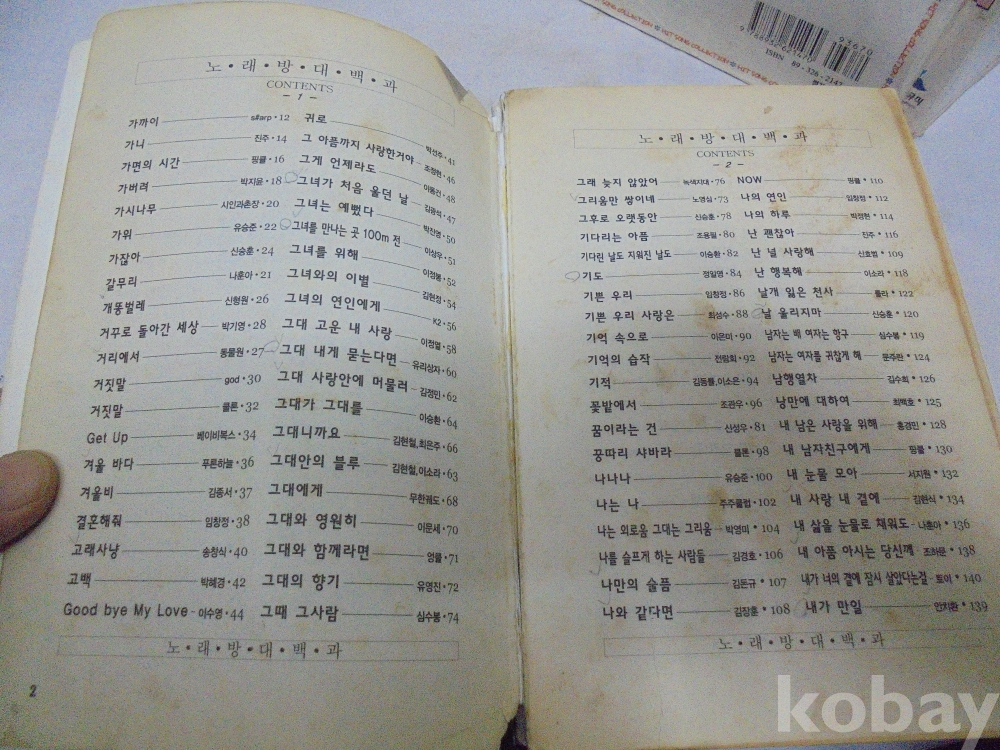 노·래·방·대·백·과
CONTENTS
- 1 -
가까이 s#arp·12
가니 진주·14
가면의 시간 핑클·16
가버려 박지윤·18
가시나무 시인과촌장·20
가위 유승준·22
가잖아 신승훈·24
갈무리 나훈아·21
개똥벌레 신형원·26
거꾸로 돌아간 세상 박기영·28
거리에서 동물원·27
거짓말 god·30
거짓말 쿨론·32
Get Up 베이비복스·34
겨울 바다 푸른하늘·36
겨울비 김종서·37
결혼해줘 임창정·38
고래사냥 송창식·40
고백 박혜경·42
Good bye My Love 이수영·44
귀로 박선주·41
그 아픔까지 사랑한거야 조정현·46
그게 언제라도 이동건·48
그녀가 처음 울던 날 김광석·47
그녀는 예뻤다 박진영·50
그녀를 만나는 곳 100m 전 이상우·51
그녀를 위해 이정봉·52
그녀와의 이별 김현정·54
그녀의 연인에게 K2·56
그대 고운 내 사랑 이정열·58
그대 내게 묻는다면 유리상자·60
그대 사랑안에 머물러 김정민·62
그대가 그대를 이승환·64
그대니까요 김현철,최은주·66
그대안의 블루 김현철,이소라·63
그대에게 무한궤도·68
그대와 영원히 이문세·70
그대와 함께라면 엉클·71
그대의 향기 유영진·72
그때 그사람 심수봉·74
노·래·방·대·백·과
2
노·래·방·대·백·과
CONTENTS
- 2 -
그래 늦지 않았어 녹색지대·76
그리움만 쌓이네 노영심·73
그후로 오랫동안 신승훈·78
기다리는 아픔 조용필·80
기다린 날도 지워진 날도 이승환·82
기도 정일영·84
기쁜 우리 임창정·86
기쁜 우리 사랑은 최성수·88
기억 속으로 이은미·90
기억의 습작 전람회·92
기적 김동률,이소은·94
꽃밭에서 조관우·96
꿈이라는 건 신성우·81
꿍따리 샤바라 클론·98
나나나 유승준·100
나는 나 주주클럽·102
나는 외로움 그대는 그리움 박영미·104
나를 슬프게 하는 사람들 김경호·106
나만의 슬픔 김돈규·107
나와 같다면 김장훈·108
NOW 핑클·110
나의 연인 임창정·112
나의 하루 박정현·114
난 괜찮아 진주·116
난 널 사랑해 신효범·109
난 행복해 이소라·118
날개 잃은 천사 룰라·122
날 울리지마 신승훈·120
남자는 배 여자는 항구 심수봉·119
남자는 여자를 귀찮게 해 문주란·124
남행열차 김수희·126
낭만에 대하여 최백호·125
내 남은 사랑을 위해 홍경민·128
내 남자친구에게 핑클·130
내 눈물 모아 서지원·132
내 사랑 내 곁에 김현식·134
내 삶을 눈물로 채워도 나훈아·136
내 아픔 아시는 당신께 조하문·138
내가 너의 곁에 잠시 살았다는걸 토이·140
내가 만일 안치환·139
노·래·방·대·백·과
93670
ISBN 89-326-2147
kobay